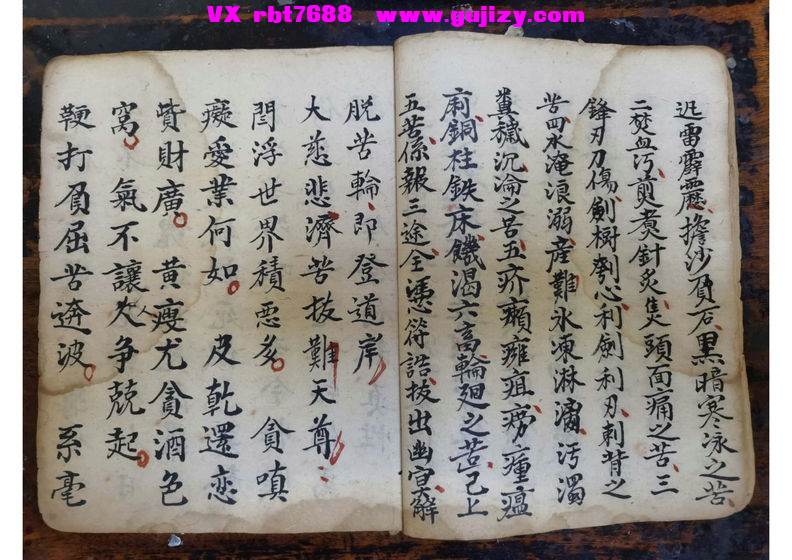 VX rbt7688 www.gujizy.com
迅雷霹靂擔沙負石黑暗寒冰之苦
二焚血污煎煮針炙隻頭面痛之苦三
鋒刃刀傷劍樹刺心利劍利刃刺背之
苦四水淹浪溺產難氷凍淋漓污濁
糞穢沉淪之苦五疥癩癰疽癆瘴瘟
痢銅柱鉄床饑渴六畜輪廻之苦已上
五苦係報三途全凴符誥拔出幽冥解
脱苦輪即登道岸
大慈悲濟苦拔難天尊
閻浮世界積悪多 貪嗔
癡愛業何如 皮乾還恋
貲財廣 黄瘦尤貪酒色
窩 氣不讓人争兢起
鞕打負屈苦逩波 系毫